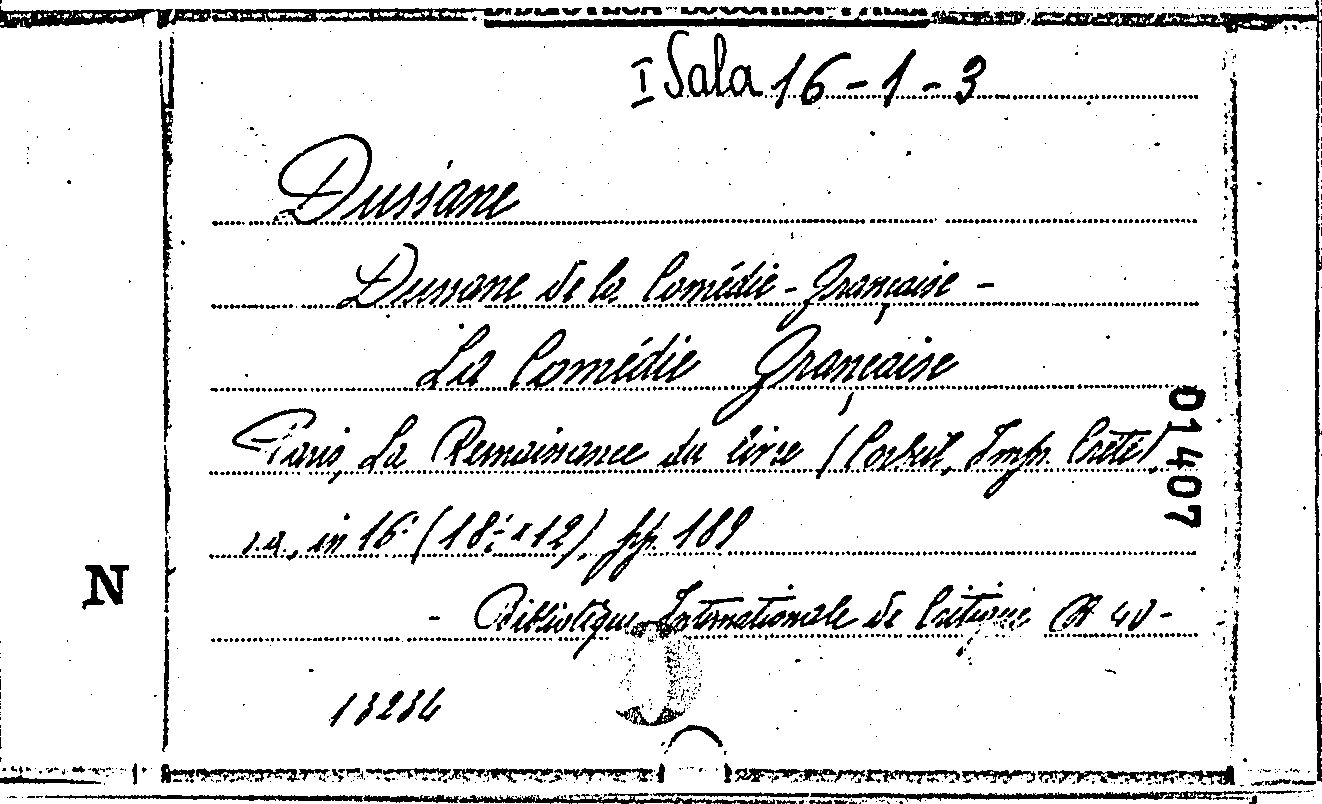 I Sala 16-1-3
Dussane
Dussane de la Comédie-Française -
La Comédie Française
Paris, La Renaissance du livre (Corbeil, Impr. Crété),
s.a., in 16° (18 x 12), pp. 189
- Bibliothèque Internationale de Critique
13234
01407
N